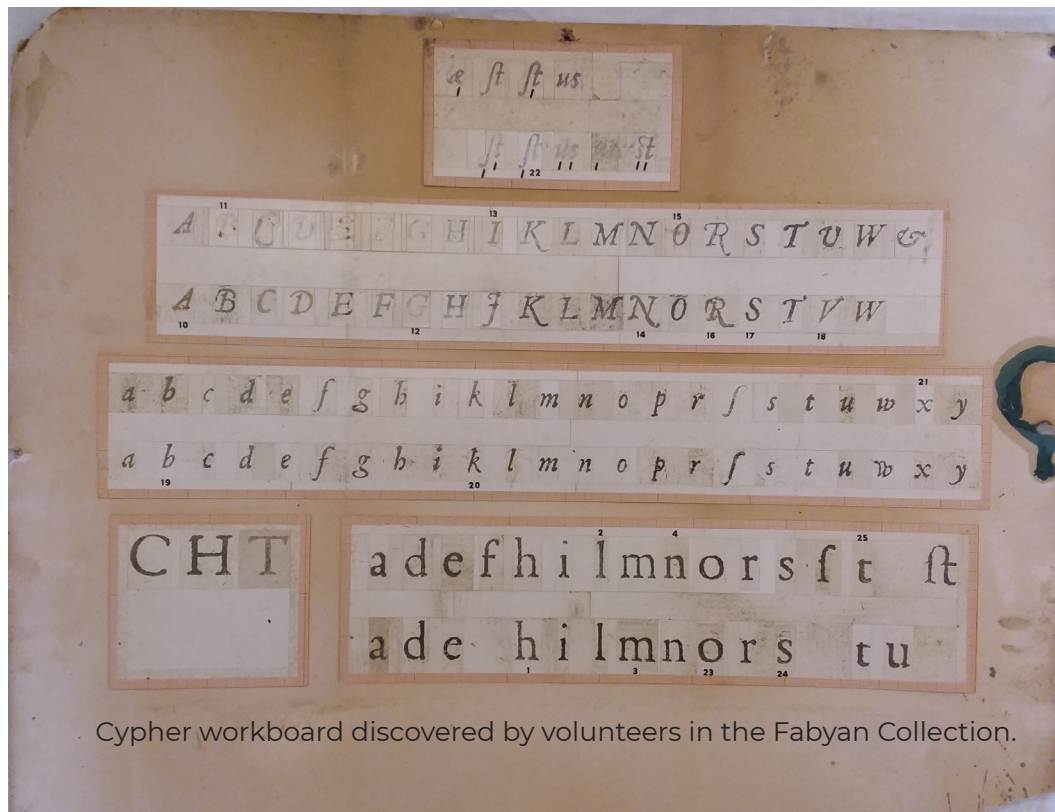 æ ſt ſt us
ſt ſt us us st
22
11 13 15
A B C D E F G H I K L M N O R S T U W &
A B C D E F G H J K L M N O R S T V W
10 12 14 16 17 18
21
a b c d e f g h i k l m n o p r ſ s t u w x y
a b c d e f g h i k l m n o p r ſ s t u w x y
19 20
C H T
2 4 25
a d e f h i l m n o r s ſ t ſt
a d e h i l m n o r s t u
1 3 23 24
Cypher workboard discovered by volunteers in the Fabyan Collection.